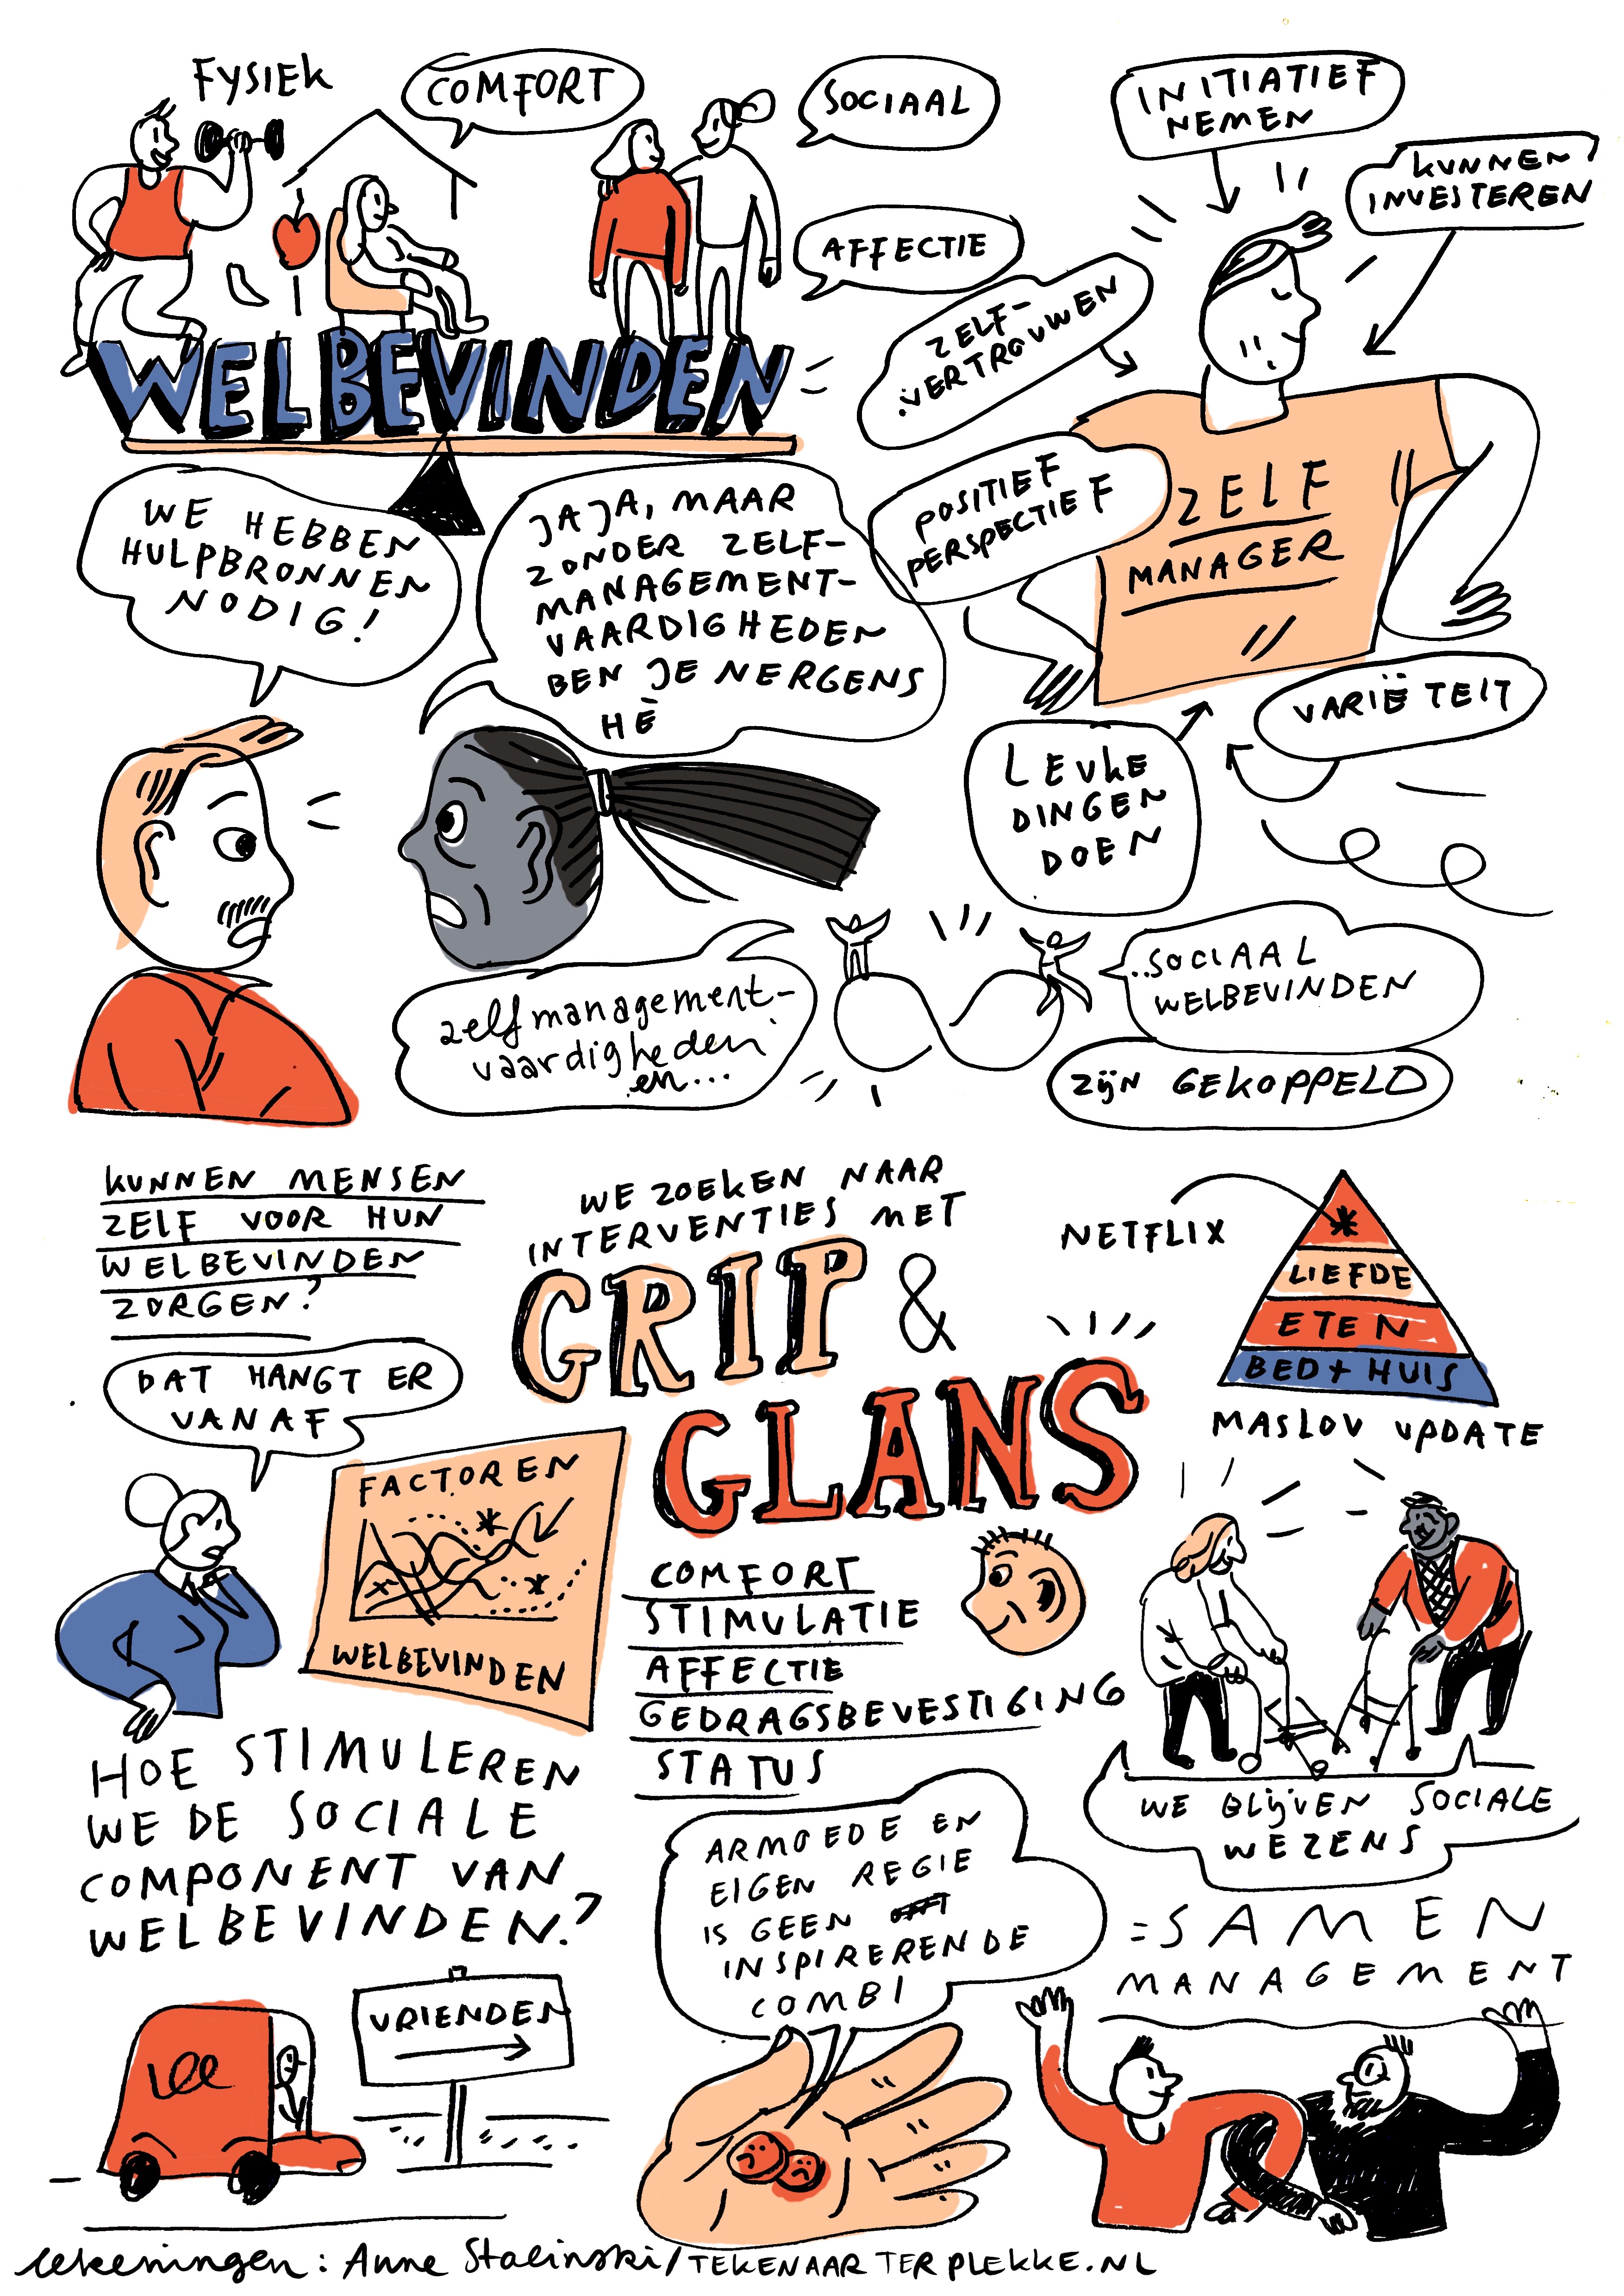 FYSIEK
COMFORT
SOCIAAL
AFFECTIE
WELBEVINDEN
INITIATIEF
NEMEN
KUNNEN
INVESTEREN
ZELF-
VERTROUWEN
POSITIEF
PERSPECTIEF
ZELF
MANAGER
VARIËTEIT
LEUKE
DINGEN
DOEN
WE HEBBEN
HULPBRONNEN
NODIG!
JAJA, MAAR
ZONDER ZELF-
MANAGEMENT-
VAARDIGHEDEN
BEN JE NERGENS
HÈ
zelfmanagement-
vaardigheden
en...
..SOCIAAL
WELBEVINDEN
ZIJN GEKOPPELD
KUNNEN MENSEN
ZELF VOOR HUN
WELBEVINDEN
ZORGEN?
DAT HANGT ER
VANAF
FACTOREN
WELBEVINDEN
WE ZOEKEN NAAR
INTERVENTIES MET
GRIP &
GLANS
COMFORT
STIMULATIE
AFFECTIE
GEDRAGSBEVESTIGING
STATUS
NETFLIX
*
LIEFDE
ETEN
BED + HUIS
MASLOV UPDATE
WE BLIJVEN SOCIALE
WEZENS
=SAMEN
MANAGEMENT
HOE STIMULEREN
WE DE SOCIALE
COMPONENT VAN
WELBEVINDEN?
VRIENDEN
ARMOEDE EN
EIGEN REGIE
IS GEEN
INSPIRERENDE
COMBI
tekeningen: Anne Stalinski/TEKENAAR TER PLEKKE.NL